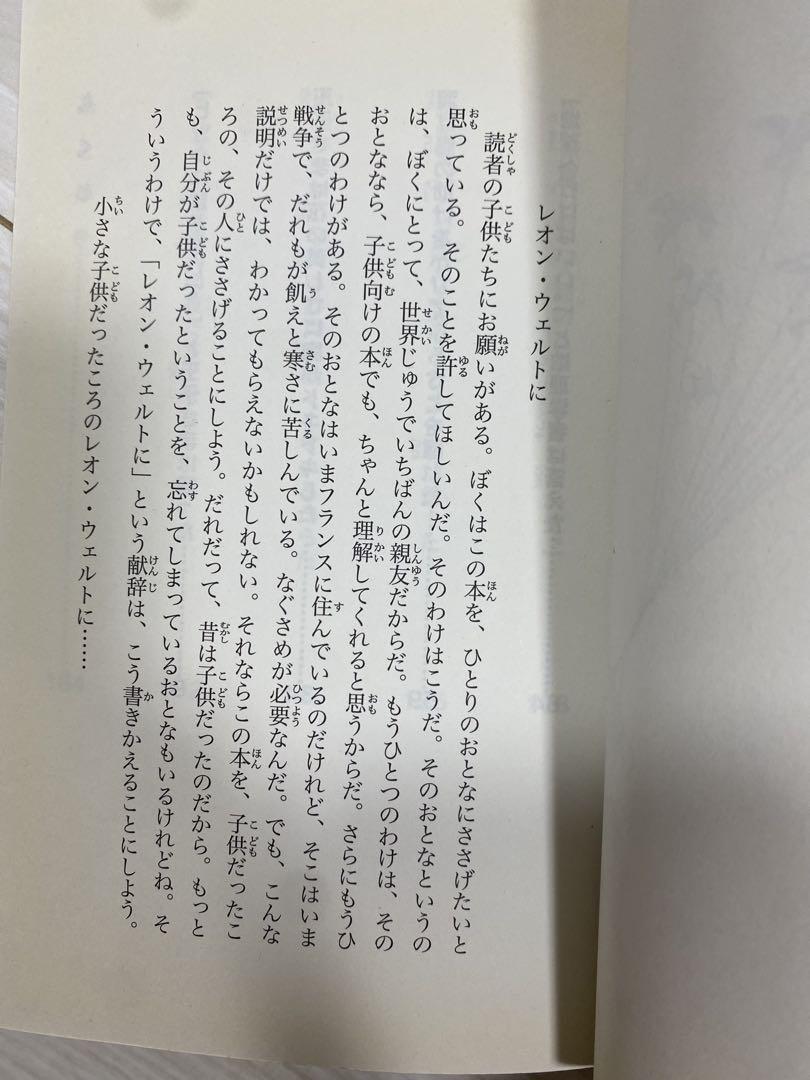 レオン・ウェルトに
読者の子供たちにお願いがある。ぼくはこの本を、ひとりのおとなにささげたいと
思っている。そのことを許してほしいんだ。そのわけはこうだ。そのおとなというの
は、ぼくにとって、世界じゅうでいちばんの親友だからだ。もうひとつのわけは、その
おとななら、子供向けの本でも、ちゃんと理解してくれると思うからだ。さらにもうひ
とつのわけがある。そのおとなはいまフランスに住んでいるのだけれど、そこはいま
戦争で、だれもが飢えと寒さに苦しんでいる。なぐさめが必要なんだ。でも、こんな
説明だけでは、わかってもらえないかもしれない。それならこの本を、子供だったこ
ろの、その人にささげることにしよう。だれだって、昔は子供だったのだから。もっと
も、自分が子供だったということを、忘れてしまっているおとなもいるけれどね。そ
ういうわけで、「レオン・ウェルトに」という献辞は、こう書きかえることにしよう。
小さな子供だったころのレオン・ウェルトに……